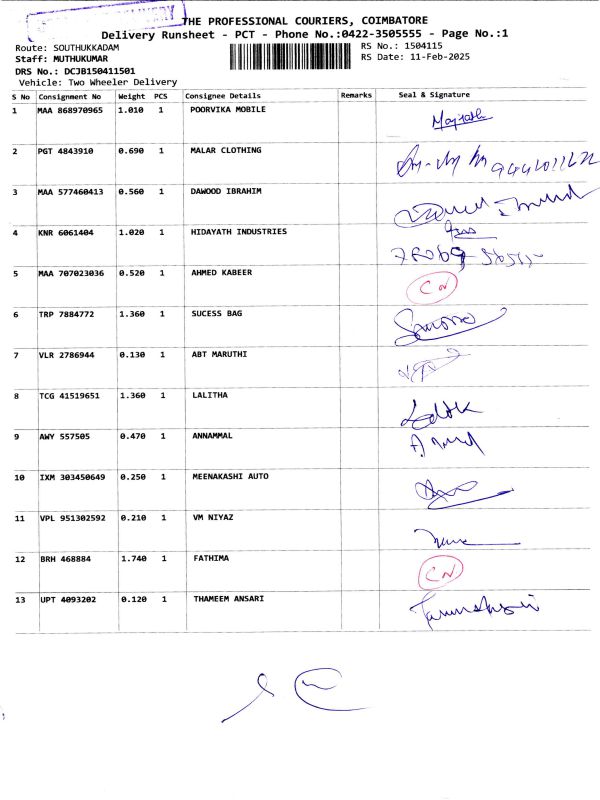 DELIVERY
THE PROFESSIONAL COURIERS, COIMBATORE
Delivery Runsheet - PCT - Phone No.:0422-3505555 - Page No.:1
Route: SOUTHUKKADAM RS No.: 1504115
Staff: MUTHUKUMAR RS Date: 11-Feb-2025
DRS No.: DCJB150411501
Vehicle: Two Wheeler Delivery
S No Consignment No Weight PCS Consignee Details Remarks Seal & Signature
1 MAA 868970965 1.010 1 POORVIKA MOBILE
2 PGT 4843910 0.690 1 MALAR CLOTHING
3 MAA 577460413 0.560 1 DAWOOD IBRAHIM
4 KNR 6061404 1.020 1 HIDAYATH INDUSTRIES
5 MAA 707023036 0.520 1 AHMED KABEER CN
6 TRP 7884772 1.360 1 SUCESS BAG
7 VLR 2786944 0.130 1 ABT MARUTHI
8 TCG 41519651 1.360 1 LALITHA
9 AWY 557505 0.470 1 ANNAMMAL
10 IXM 303450649 0.250 1 MEENAKASHI AUTO
11 VPL 951302592 0.210 1 VM NIYAZ
12 BRH 468884 1.740 1 FATHIMA CN
13 UPT 4093202 0.120 1 THAMEEM ANSARI